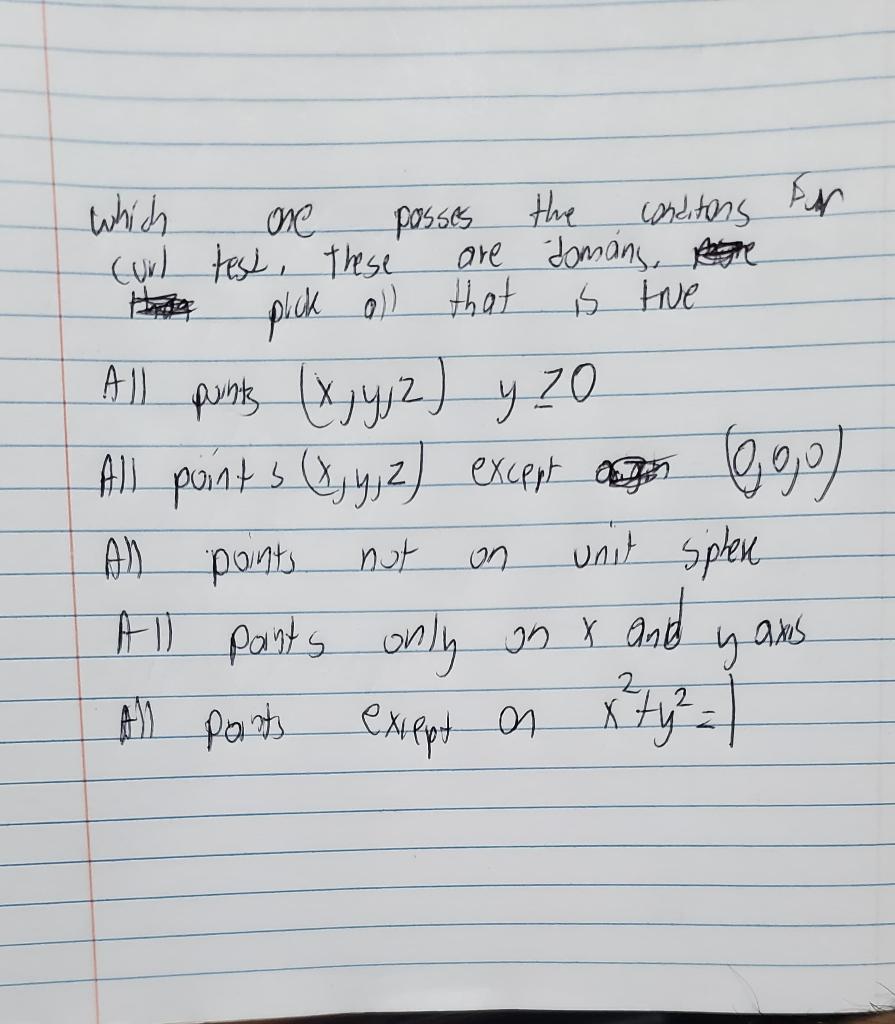 Which one posses the conditons For
curl test, these are domans.
pick all that is true
All points (x,y,z) y ≥ 0
All points (x,y,z) except (0,0,0)
All points not on unit sphere
All points only on x and y axis
All points except on x²+y²=1